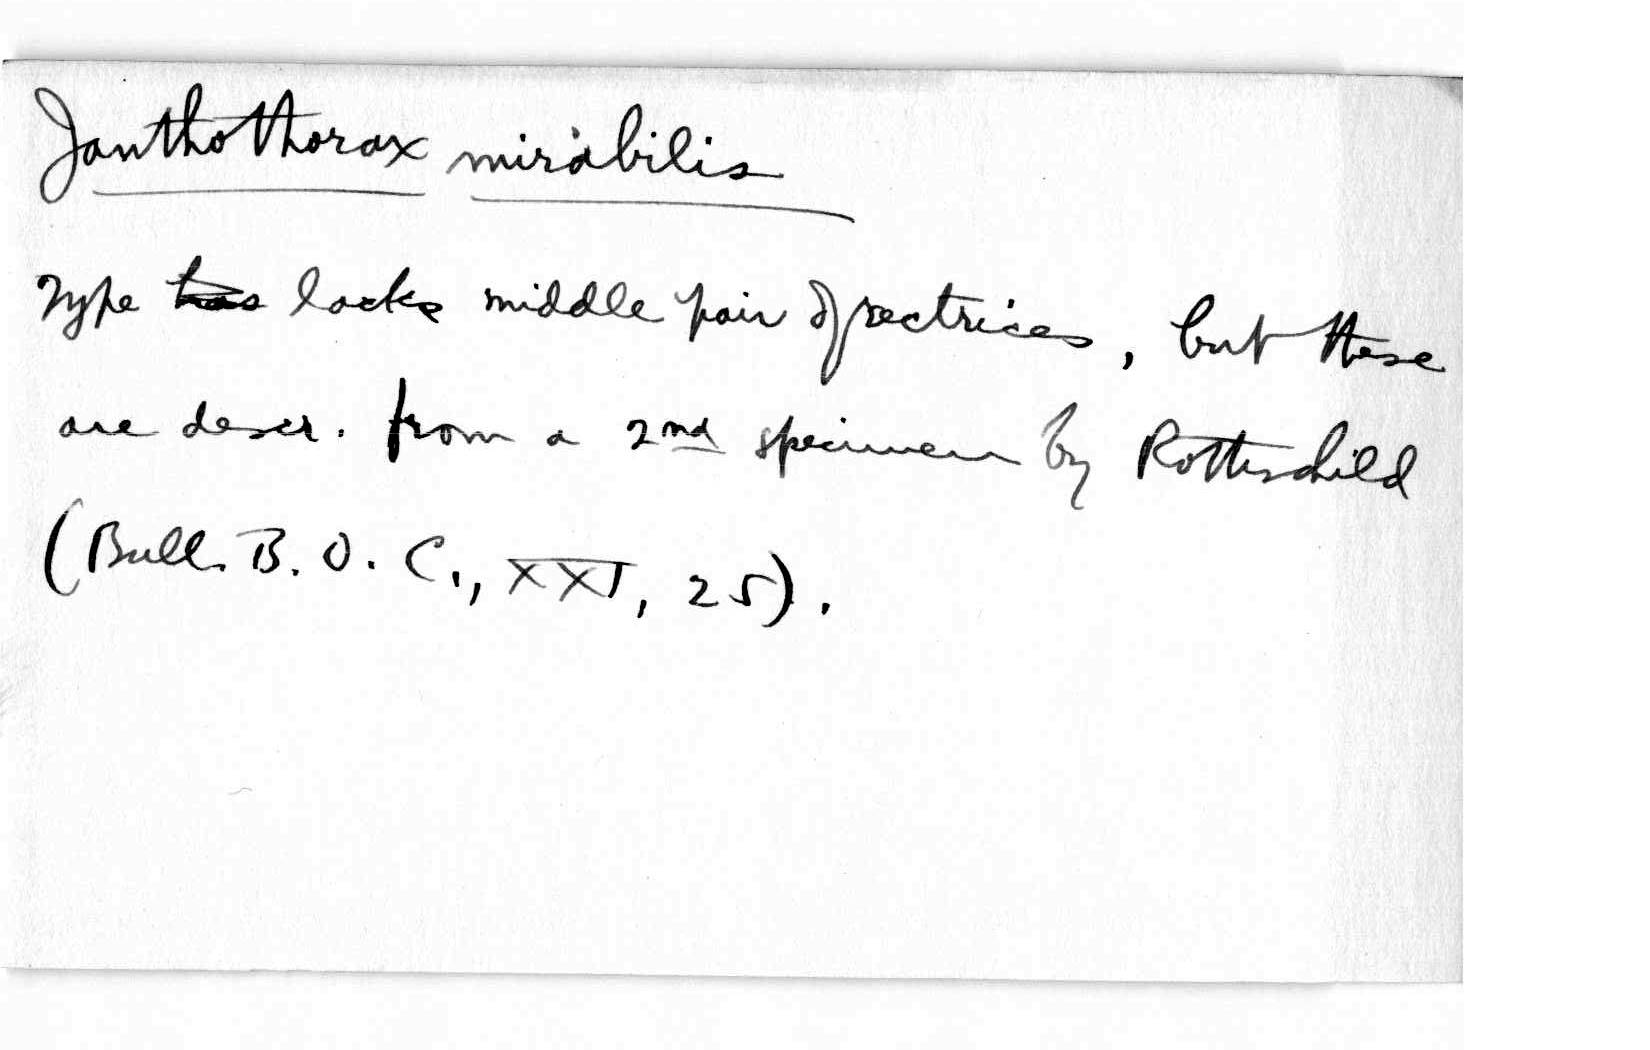 Janthothorax mirabilis
Type has lacks middle pair of rectrices, but these
are descr. from a 2nd specimen by Rothschild
(Bull. B. O. C., XXI, 25).